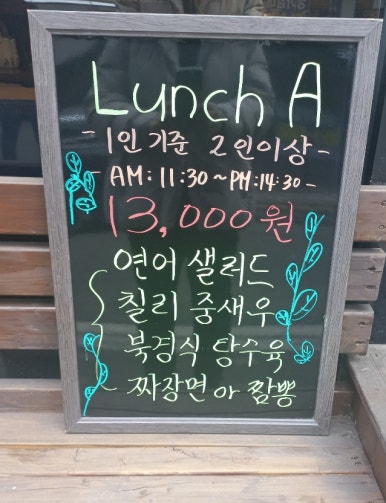 Lunch A
- 1인 기준 2인이상 -
- AM: 11:30 ~ PM:14:30 -
13,000원
연어 샐러드
칠리 중새우
북경식 탕수육
짜장면 or 짬뽕